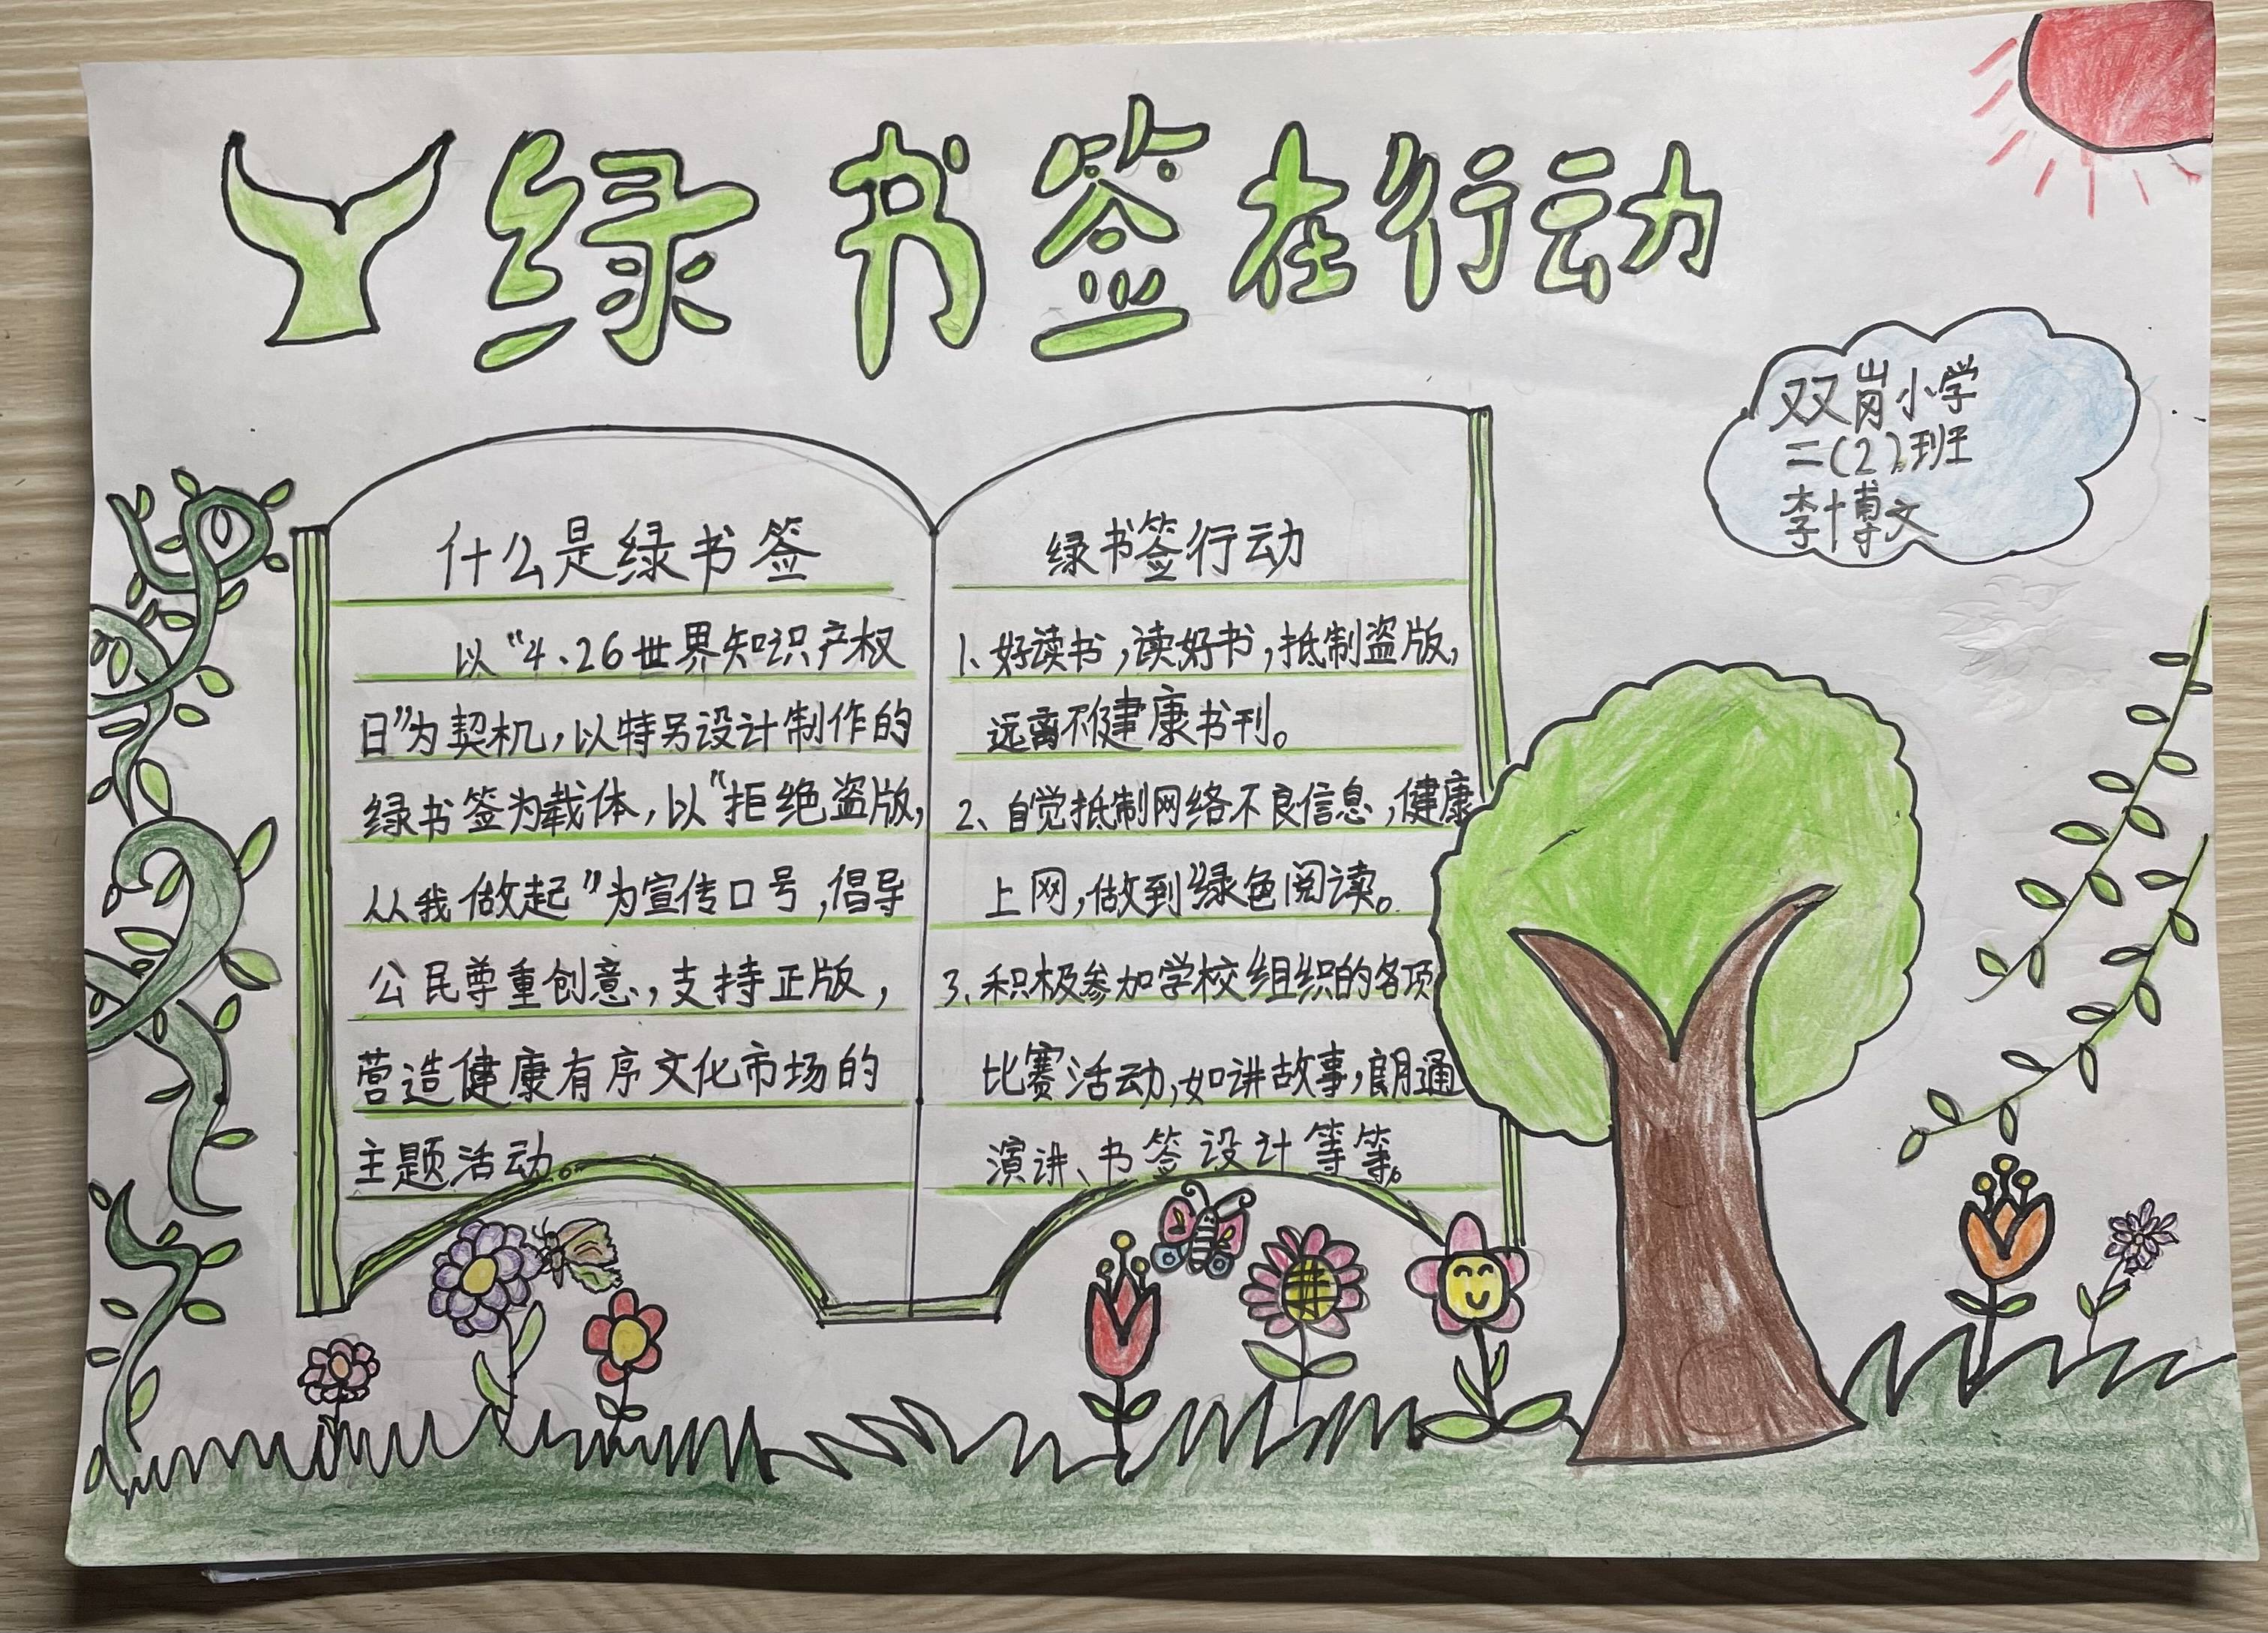 绿书签在行动
双岗小学
二(2)班
李博文
什么是绿书签
以“4.26世界知识产权
日”为契机,以特另设计制作的
绿书签为载体,以“拒绝盗版,
从我做起”为宣传口号,倡导
公民尊重创意,支持正版,
营造健康有序文化市场的
主题活动。
绿书签行动
1、好读书,读好书,抵制盗版,
远离不健康书刊。
2、自觉抵制网络不良信息,健康
上网,做到绿色阅读。
3、积极参加学校组织的各项
比赛活动,如讲故事,朗通
演讲、书签设计等等。